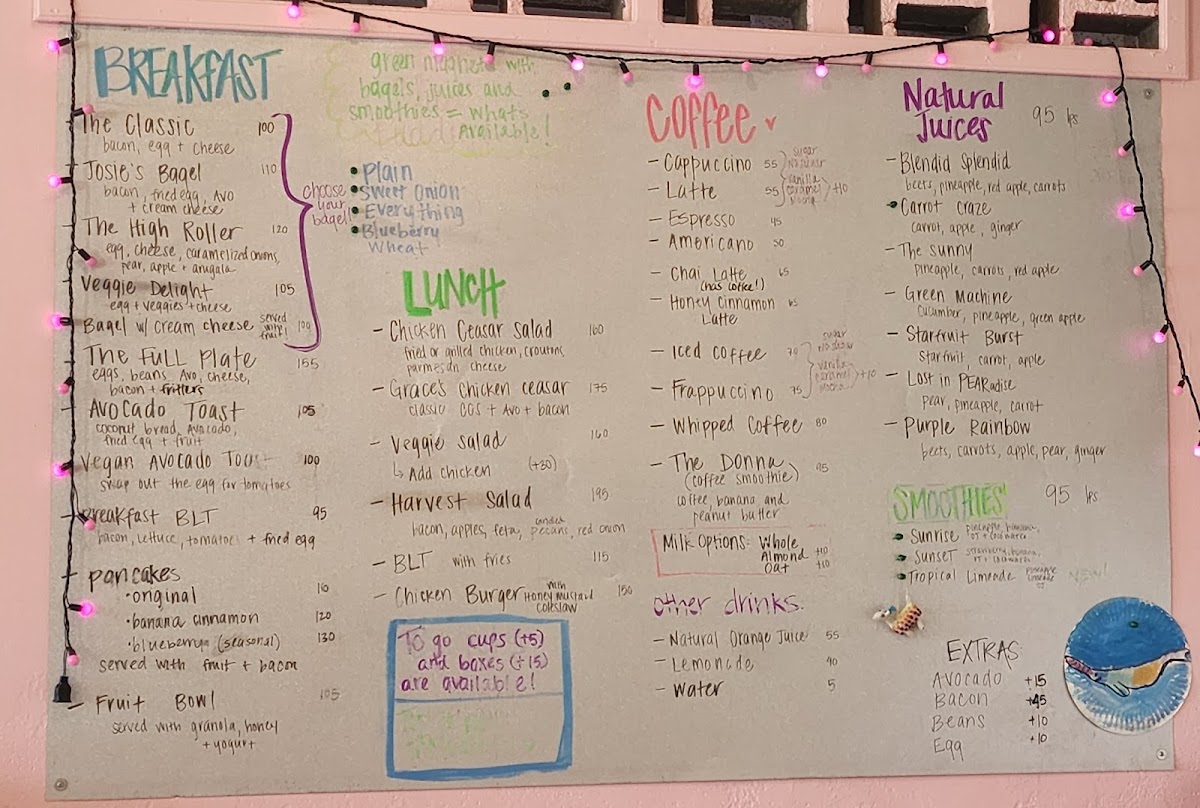 BREAKFAST
The Classic 100
bacon, egg + cheese
Josie's Bagel 110
bacon, fried egg, Avo
+ cream cheese
The High Roller 120
egg, cheese, caramelized onions,
pear, apple + arugula
Veggie Delight 105
egg + veggies + cheese
Bagel w/ cream cheese served with fruit! 100
choose your bagel!
The Full Plate 155
eggs, beans, Avo, cheese,
bacon + fritters
Avocado Toast 105
coconut bread, Avocado,
fried egg + fruit
Vegan Avocado Toast 100
swap out the egg for tomatoes
Breakfast BLT 95
bacon, lettuce, tomatoes + fried egg
pancakes
•original
•banana cinnamon 120
•blueberry (seasonal) 130
served with fruit + bacon
- Fruit Bowl 105
served with granola, honey
+ yogurt
green magnets with
bagels, juices and
smoothies = whats
Available!
• Plain
• Sweet Onion
• Everything
• Blueberry
Wheat
LUNCH
- Chicken Ceasar Salad 160
fried or grilled chicken, croutons,
parmesan cheese
- Grace's chicken ceasar 175
classic CCS + Avo + bacon
- Veggie Salad 160
↳ Add chicken (+30)
- Harvest Salad 195
bacon, apples, feta, candied pecans, red onion
- BLT with fries 115
- Chicken Burger with Honey mustard coleslaw 150
To go cups (+5)
and boxes (+15)
are available!
COFFEE ♥
- Cappuccino 55
- Latte 55
sugar
vanilla
caramel
+10
- Espresso 45
- Americano 50
- Chai Latte 65
(has coffee!)
- Honey Cinnamon
Latte
- Iced Coffee
- Frappuccino 75
sugar
vanilla
caramel
mocha
+10
- Whipped Coffee 80
- The Donna 95
(coffee smoothie)
coffee, banana and
peanut butter
Milk Options: Whole
Almond +10
Oat +10
other drinks:
- Natural Orange Juice 55
- Lemonade
- Water 5
Natural
Juices 95 lps
- Blendid Splendid
beets, pineapple, red apple, carrots
Carrot Craze
carrot, apple, ginger
- The Sunny
pineapple, carrots, red apple
- Green Machine
Cucumber, pineapple, green apple
- Starfruit Burst
Starfruit, carrot, apple
- Lost in PEARadise
pear, pineapple, carrot
- Purple Rainbow
beets, carrots, apple, pear, ginger
SMOOTHIES 95 lps
• Sunrise pineapple, banana,
OJ + coco water
• Sunset strawberry, banana,
OJ + coco water
• Tropical Limeade pineapple
limeade
OJ NEW!
EXTRAS:
Avocado +15
Bacon +45
Beans +10
Egg +10